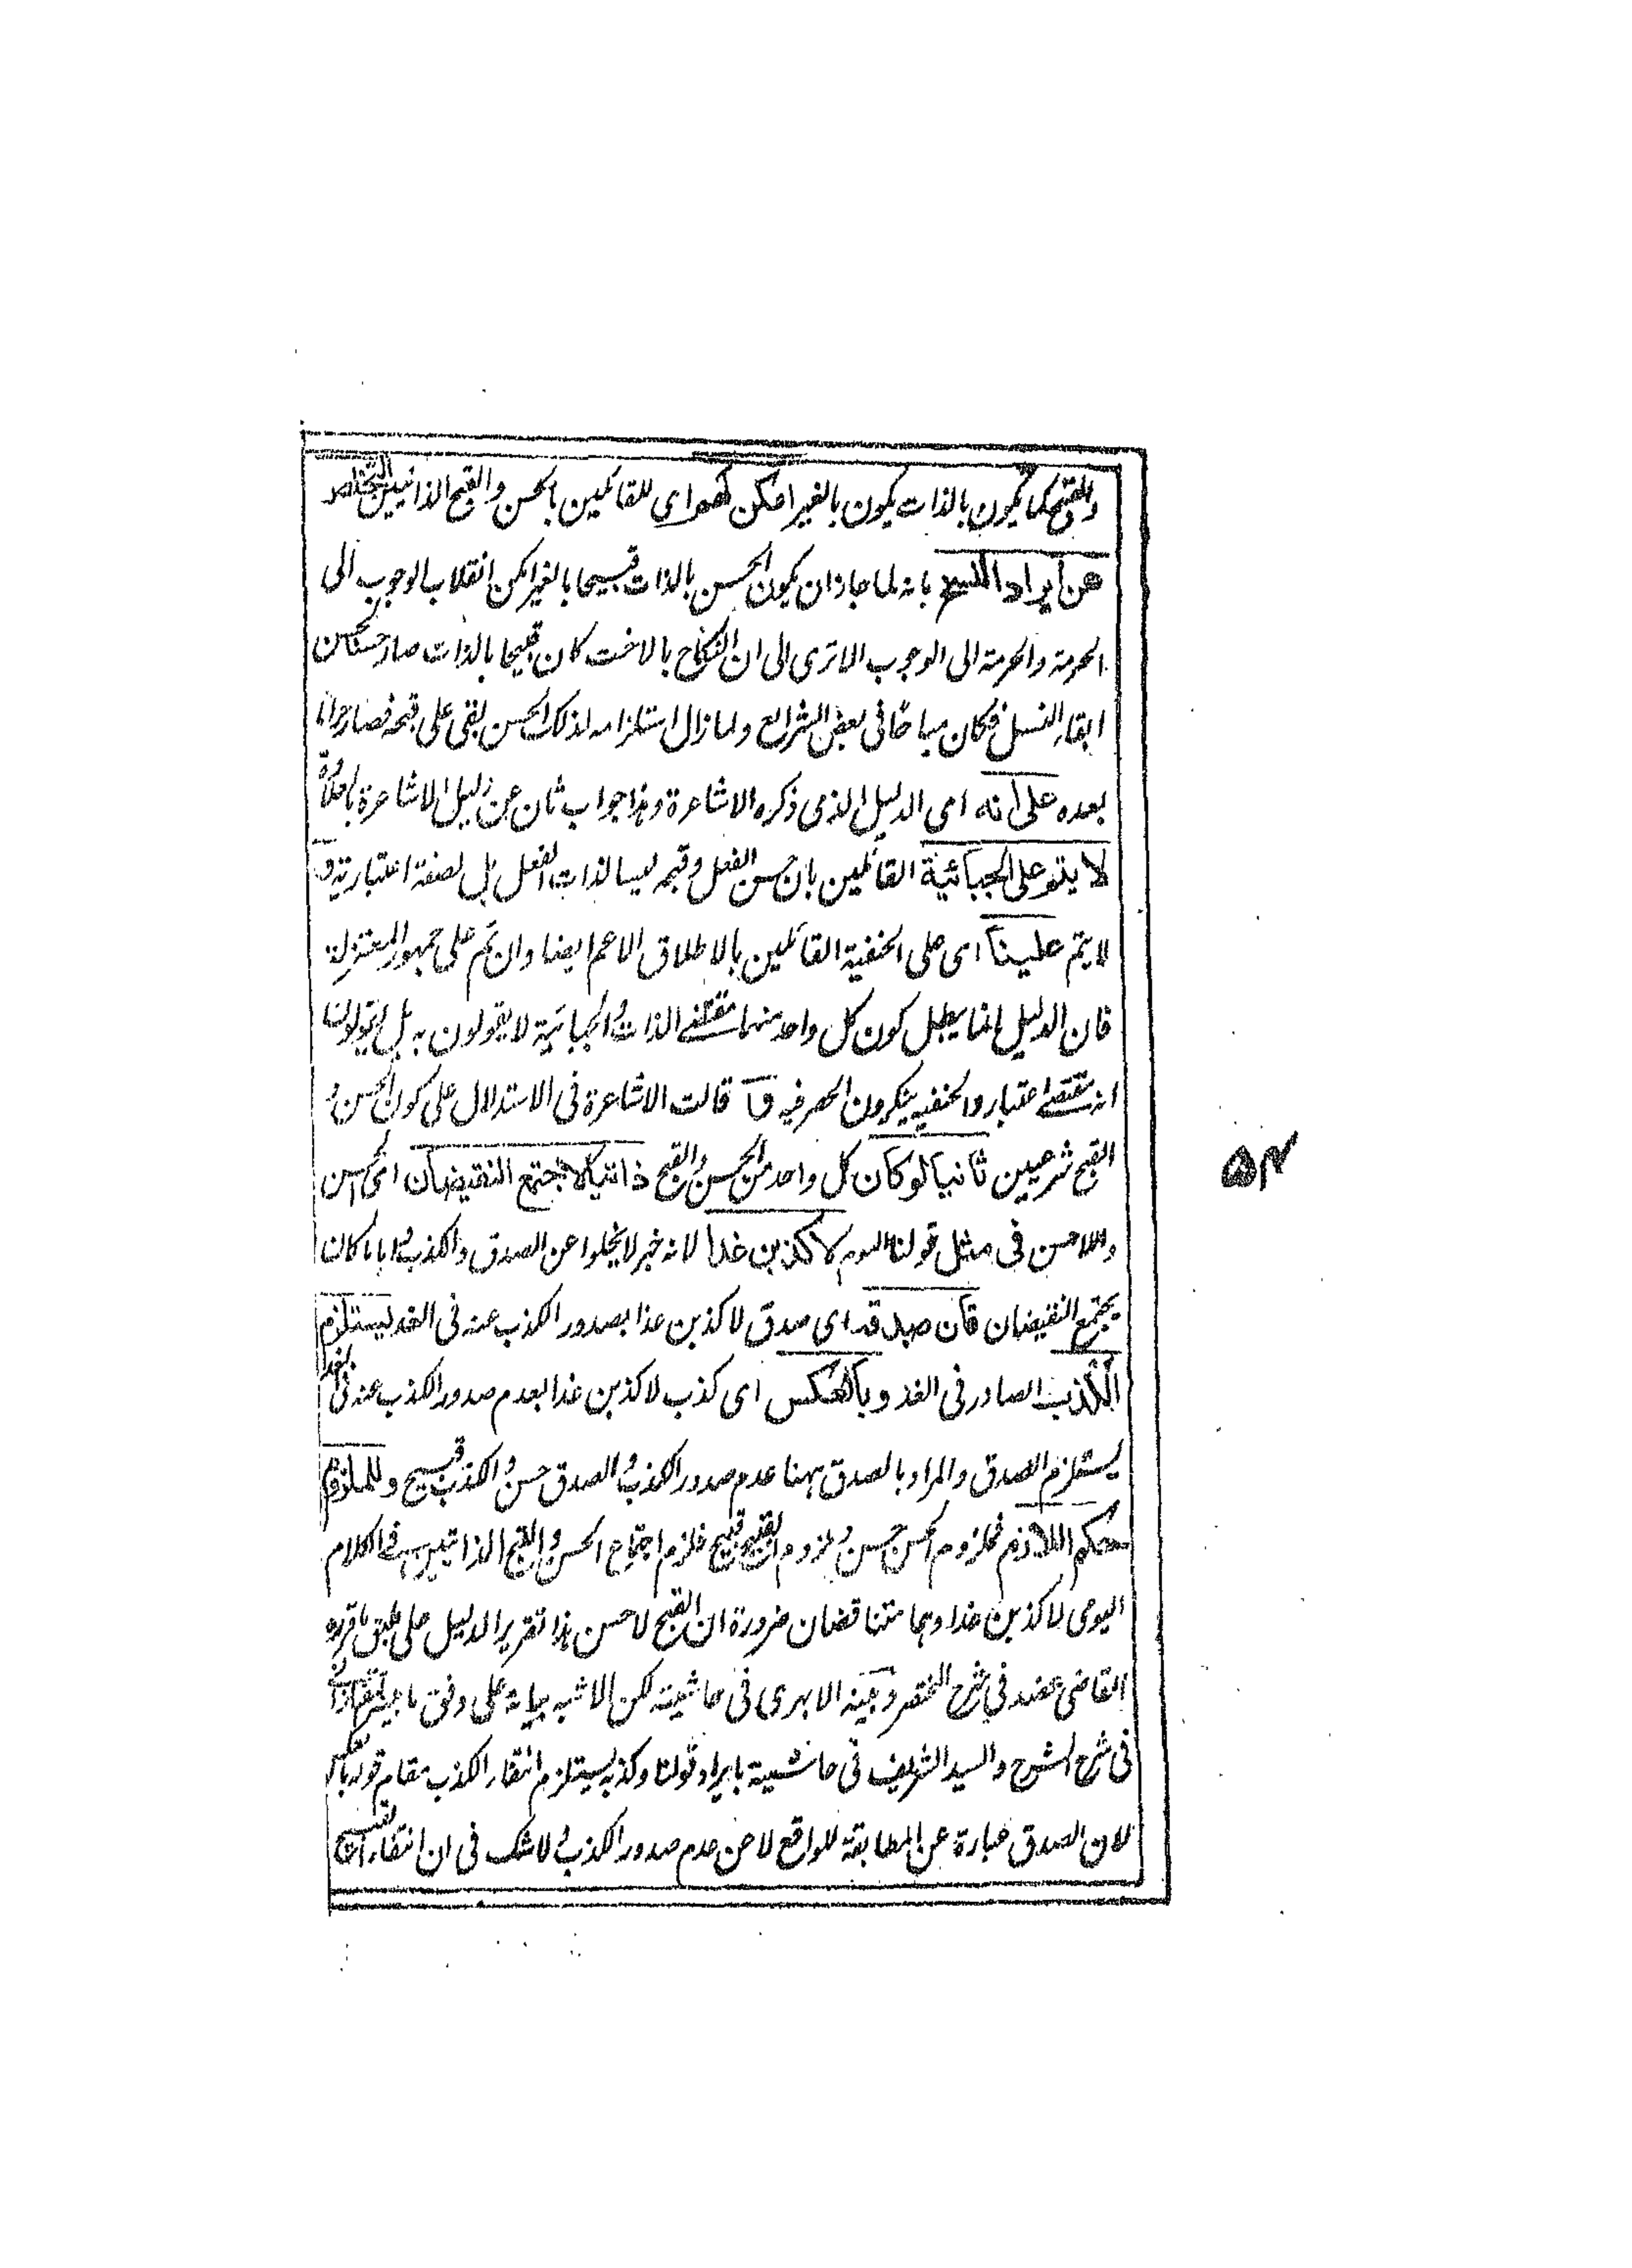 والقبح كما يكون بالذات يكون بالغير امكن لهم اى للقائلين بالحسن والقبح الذاتيين التخلص
عن ايراد النسخ بانه لما جاز ان يكون الحسن بالذات قبيحا بالغير امكن انقلاب الوجوب الى
الحرمة والحرمة الى الوجوب الا ترى الى ان النكاح بالاخت كان قبيحا بالذات صار حسنا لحسن
ابقاء النسل فكان مباحا فى بعض الشرائع ولما زال استلزامه لذلك الحسن بقى على قبحه فصار حراما
بعده على انه اى الدليل الذى ذكره الاشاعرة وهذا جواب ثان عن دليل الاشاعرة
لا يتم على الجبائية القائلين بان حسن الفعل وقبحه ليسا لذات الفعل بل لصفة اعتبارية و
لا يتم علينا اى على الحنفية القائلين بالاطلاق الاعم ايضا وان تم على جمهور المعتزلة
فان الدليل انما يبطل كون كل واحد منهما مقتضى الذات والجبائية لا يقولون به بل يقولون
انه مقتضى اعتبار والحنفية ينكرون الحصر فيه و قالت الاشاعرة فى الاستدلال على كون الحسن و
القبح شرعيين ثانيا لو كان كل واحد من الحسن والقبح ذاتيا لاجتمع النقيضان اى الحسن
واللاحسن فى مثل قولنا اليوم لاكذبن غدا لانه خبر لا يخلوا عن الصدق والكذب وايا ما كان
يجتمع النقيضان فان صدقه اى صدق لاكذبن غدا بصدور الكذب عنه فى الغد يستلزم
الكذب الصادر فى الغد وبالعكس اى كذب لاكذبن غدا بعدم صدور الكذب عنه فى الغد
يستلزم الصدق والمراد بالصدق ههنا عدم صدور الكذب والصدق حسن والكذب قبيح وللملزوم
حكم اللازم فملزوم الحسن حسن وملزوم القبيح قبيح فلزم اجتماع الحسن والقبح الذاتيين فى الكلام
اليومى لاكذبن غدا وهما متناقضان ضرورة ان القبح لاحسن هذا تقرير الدليل على طبق ما قرره
القاضى عضد فى شرح المختصر وبينه الابهرى فى حاشيته لكن الاشبه بيانه على وفق ما بينه التفتازانى
فى شرح الشرح والسيد الشريف فى حاشيته بايراد قولنا وكذبه يستلزم انتفاء الكذب مقام قوله بالعكس
لان الصدق عبارة عن المطابقة للواقع لا عن عدم صدور الكذب ولا شك فى ان انتفاء القبيح
۵۴